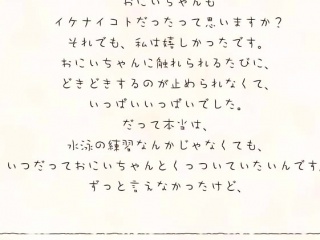 おにいちゃんも
イケナイコトだったって思いますか?
それでも、私は嬉しかったです。
おにいちゃんに触れられるたびに、
どきどきするのが止められなくて、
いっぱいいっぱいでした。
だって本当は、
水泳の練習なんかじゃなくても、
いつだっておにいちゃんとくっついていたいんです。
ずっと言えなかったけど、